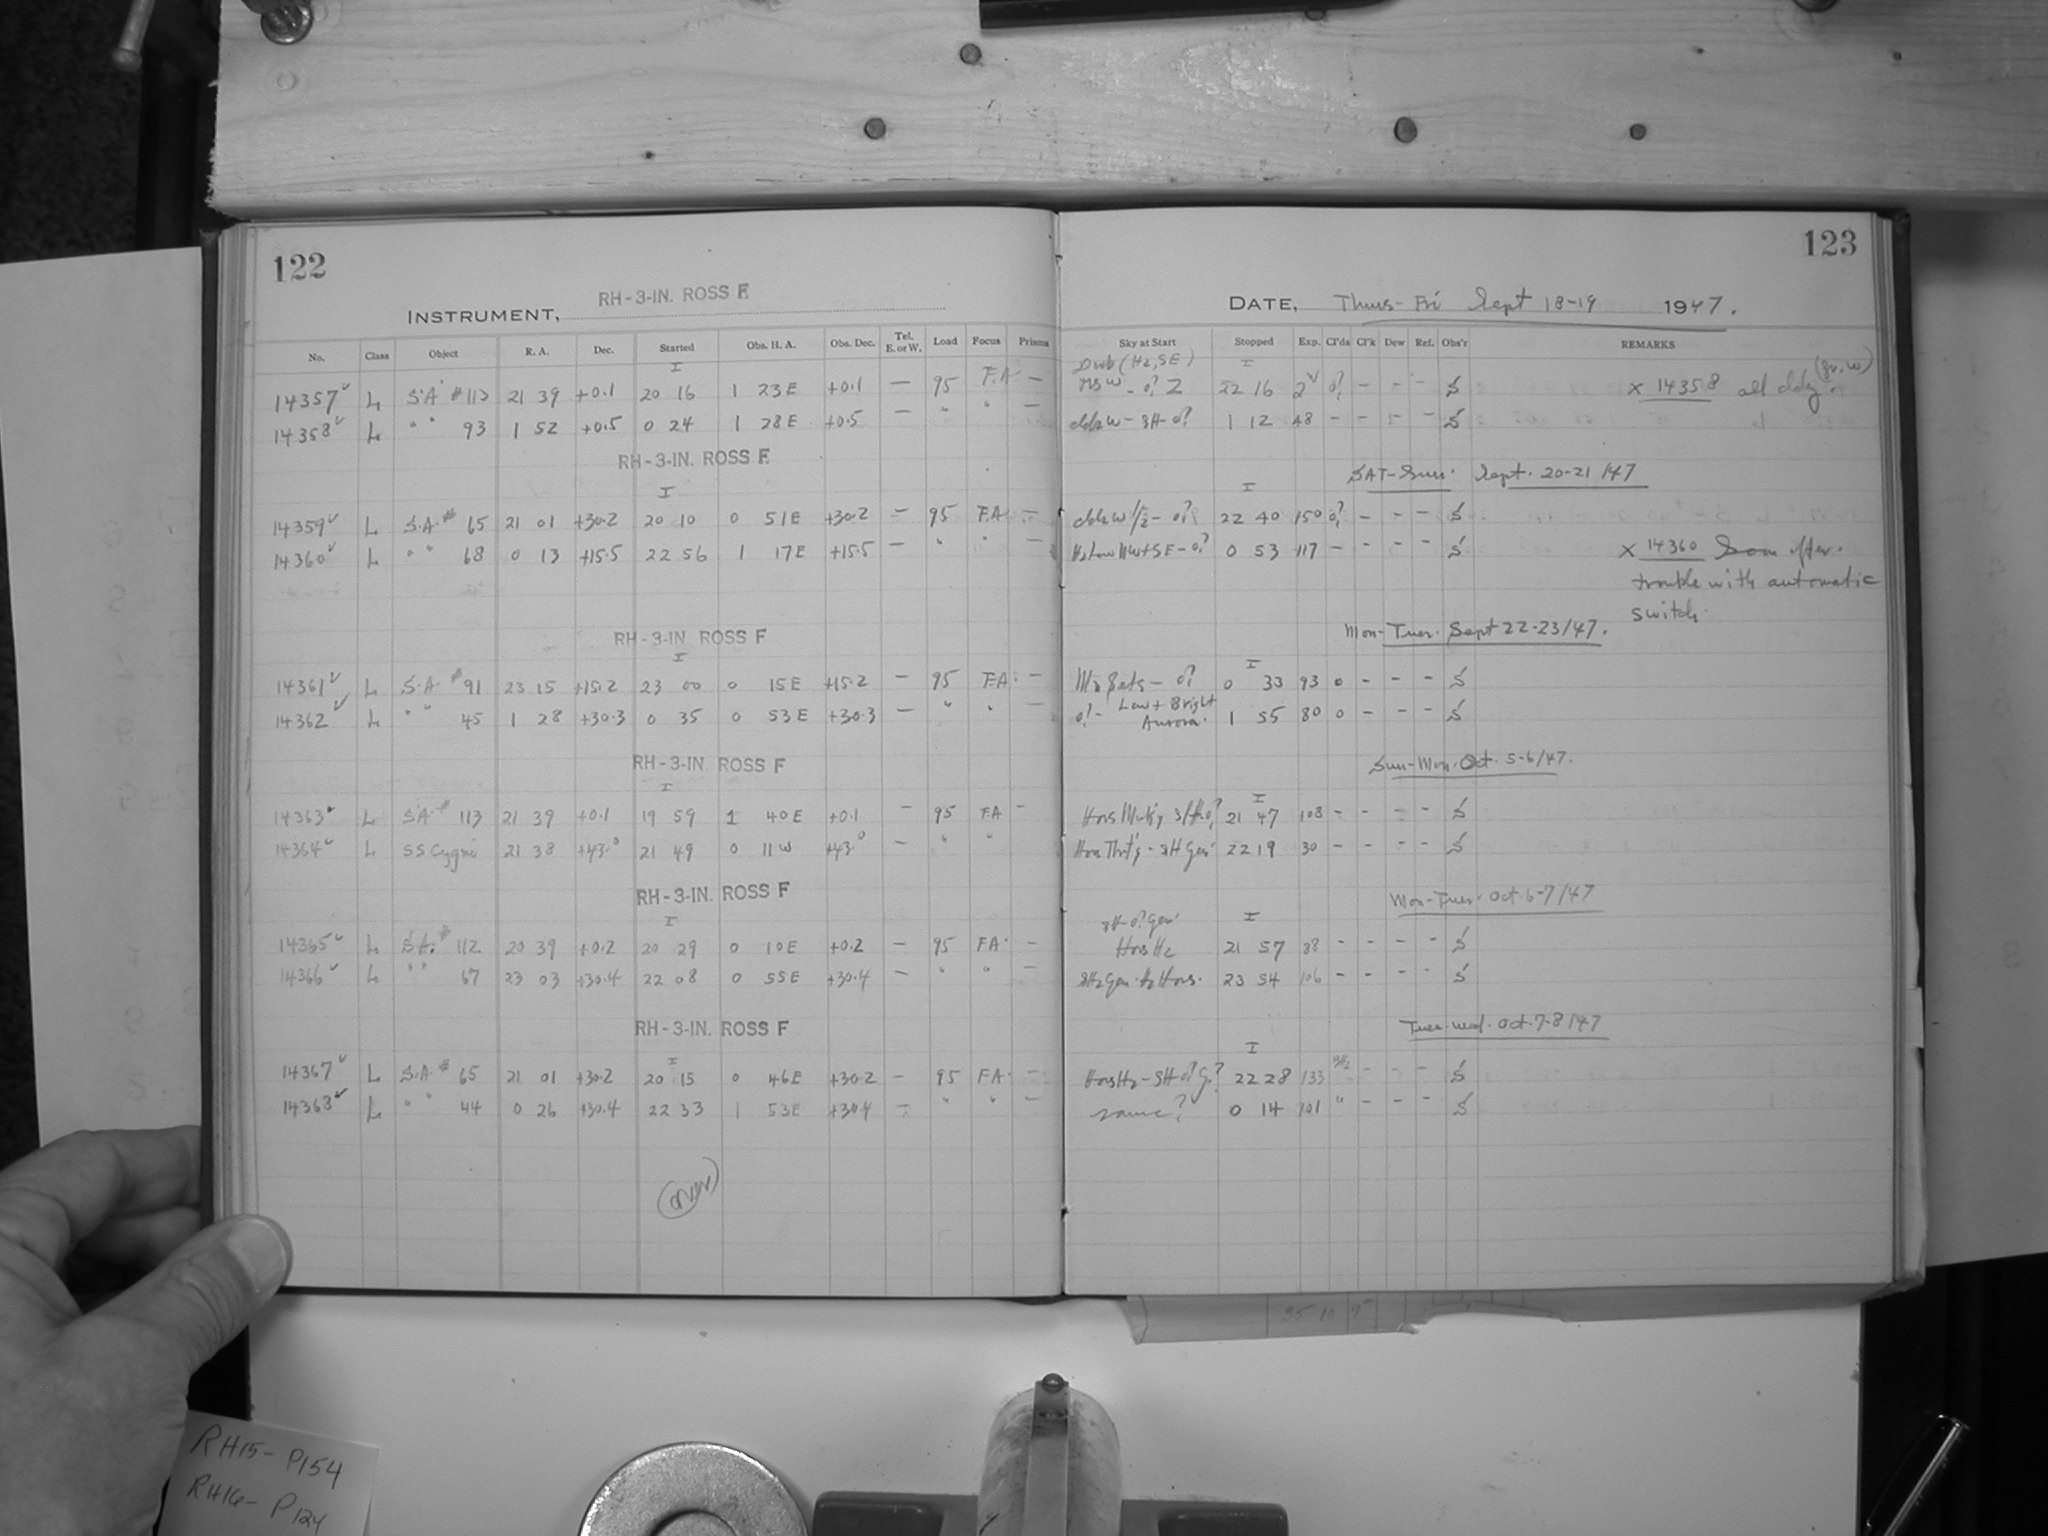 122
123
RH-3-IN. ROSS F
INSTRUMENT,
DATE, Thurs-Fri Sept 18-19 1947.
No. Class Object R. A. Dec. Started Obs. H. A. Obs. Dec. Tel. E. or W. Load Focus Prisms Sky at Start Stopped Exp. Cl'ds Cl'k Dew Ref. Obs'r REMARKS
14357 L S.A # 113 21 39 +0.1 20 16 1 23 E +0.1 — 95 F.A — 22 16 S x 14358 all cldy.
14358 L " " 93 1 52 +0.5 0 24 1 28 E +0.5 — " " — 1 12 48 - - - - S
RH-3-IN. ROSS F
SAT-Sun. Sept. 20-21/47
14359 L S.A. # 65 21 01 +30.2 20 10 0 51 E +30.2 — 95 F.A — 22 40 150 o? - - - S
14360 L " " 68 0 13 +15.5 22 56 1 17 E +15.5 — " " — 0 53 117 - - - - S x 14360
trouble with automatic
switch.
RH-3-IN. ROSS F
Mon-Tues. Sept 22-23/47.
14361 L S.A. # 91 23 15 +15.2 23 00 0 15 E +15.2 — 95 F.A. — 0 33 93 0 - - - S
14362 L " " 45 1 28 +30.3 0 35 0 53 E +30.3 — " " — o? - Low + Bright Aurora. 1 55 80 0 - - - S
RH-3-IN. ROSS F
Sun-Mon. Oct. 5-6/47.
14363 L S.A. # 113 21 39 +0.1 19 59 1 40 E +0.1 — 95 FA — 21 47 108 - - - - S
14364 L SS Cygni 21 38 +43.0 21 49 0 11 W +43.0 — " " 22 19 30 - - - - S
RH-3-IN. ROSS F
Mon-Tues. Oct. 6-7/47
14365 L S.A. # 112 20 39 +0.2 20 29 0 10 E +0.2 — 95 FA. — 21 57 88 - - - - S
14366 L " " 67 23 03 +30.4 22 08 0 55 E +30.4 — " " — 23 54 106 - - - - S
RH-3-IN. ROSS F
Tues-Wed. Oct. 7-8/47
14367 L S.A. # 65 21 01 +30.2 20 15 0 46 E +30.2 — 95 FA. — 22 28 133 - - - S
14368 L " " 44 0 26 +30.4 22 33 1 53 E +30.4 — " " — same? 0 14 101 " - - - S
(over)
RH15- P154
RH16- P124